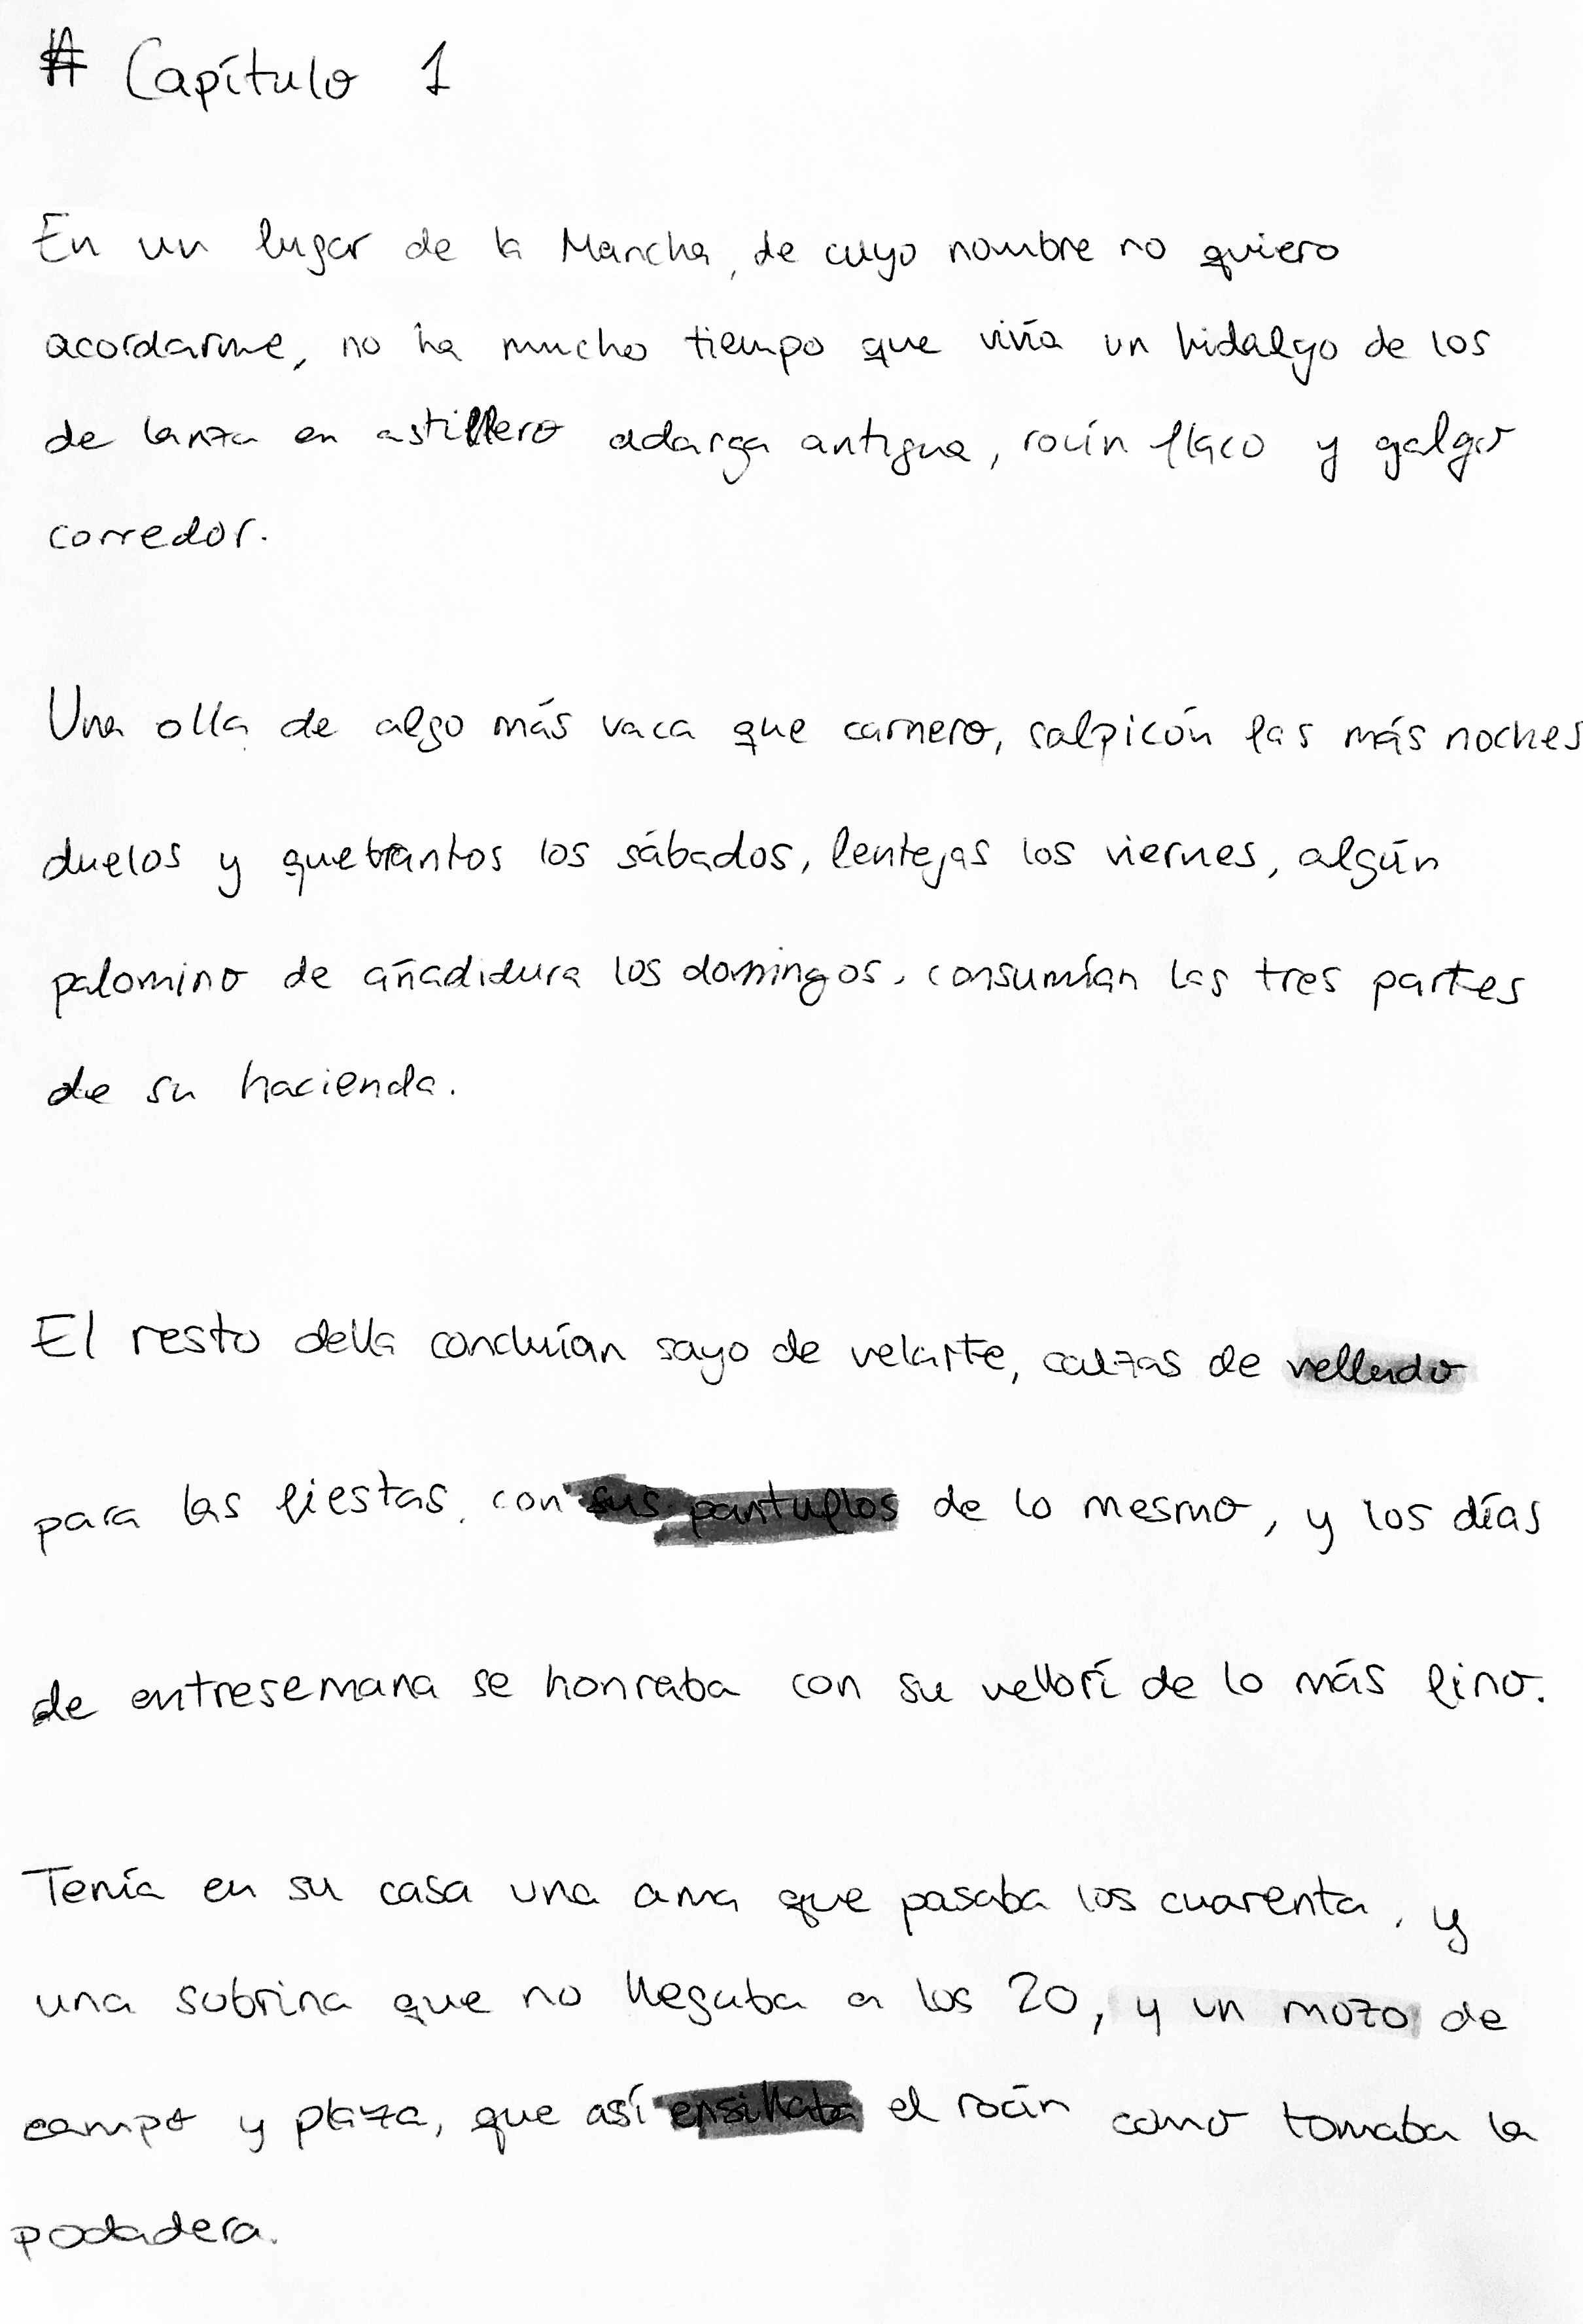 # Capítulo 1
En un lugar de la Mancha, de cuyo nombre no quiero
acordarme, no ha mucho tiempo que vivía un hidalgo de los
de lanza en astillero adarga antigua, rocín flaco y galgo
corredor.
Una olla de algo más vaca que carnero, salpicón las más noches
duelos y quebrantos los sábados, lentejas los viernes, algún
palomino de añadidura los domingos, consumían las tres partes
de su hacienda.
El resto della concluían sayo de velarte, calzas de velludo
para las fiestas, con sus pantuflos de lo mesmo, y los días
de entresemana se honraba con su vellorí de lo más fino.
Tenía en su casa una ama que pasaba los cuarenta, y
una sobrina que no llegaba a los 20, y un mozo de
campo y plaza, que así ensillaba el rocín como tomaba la
podadera.